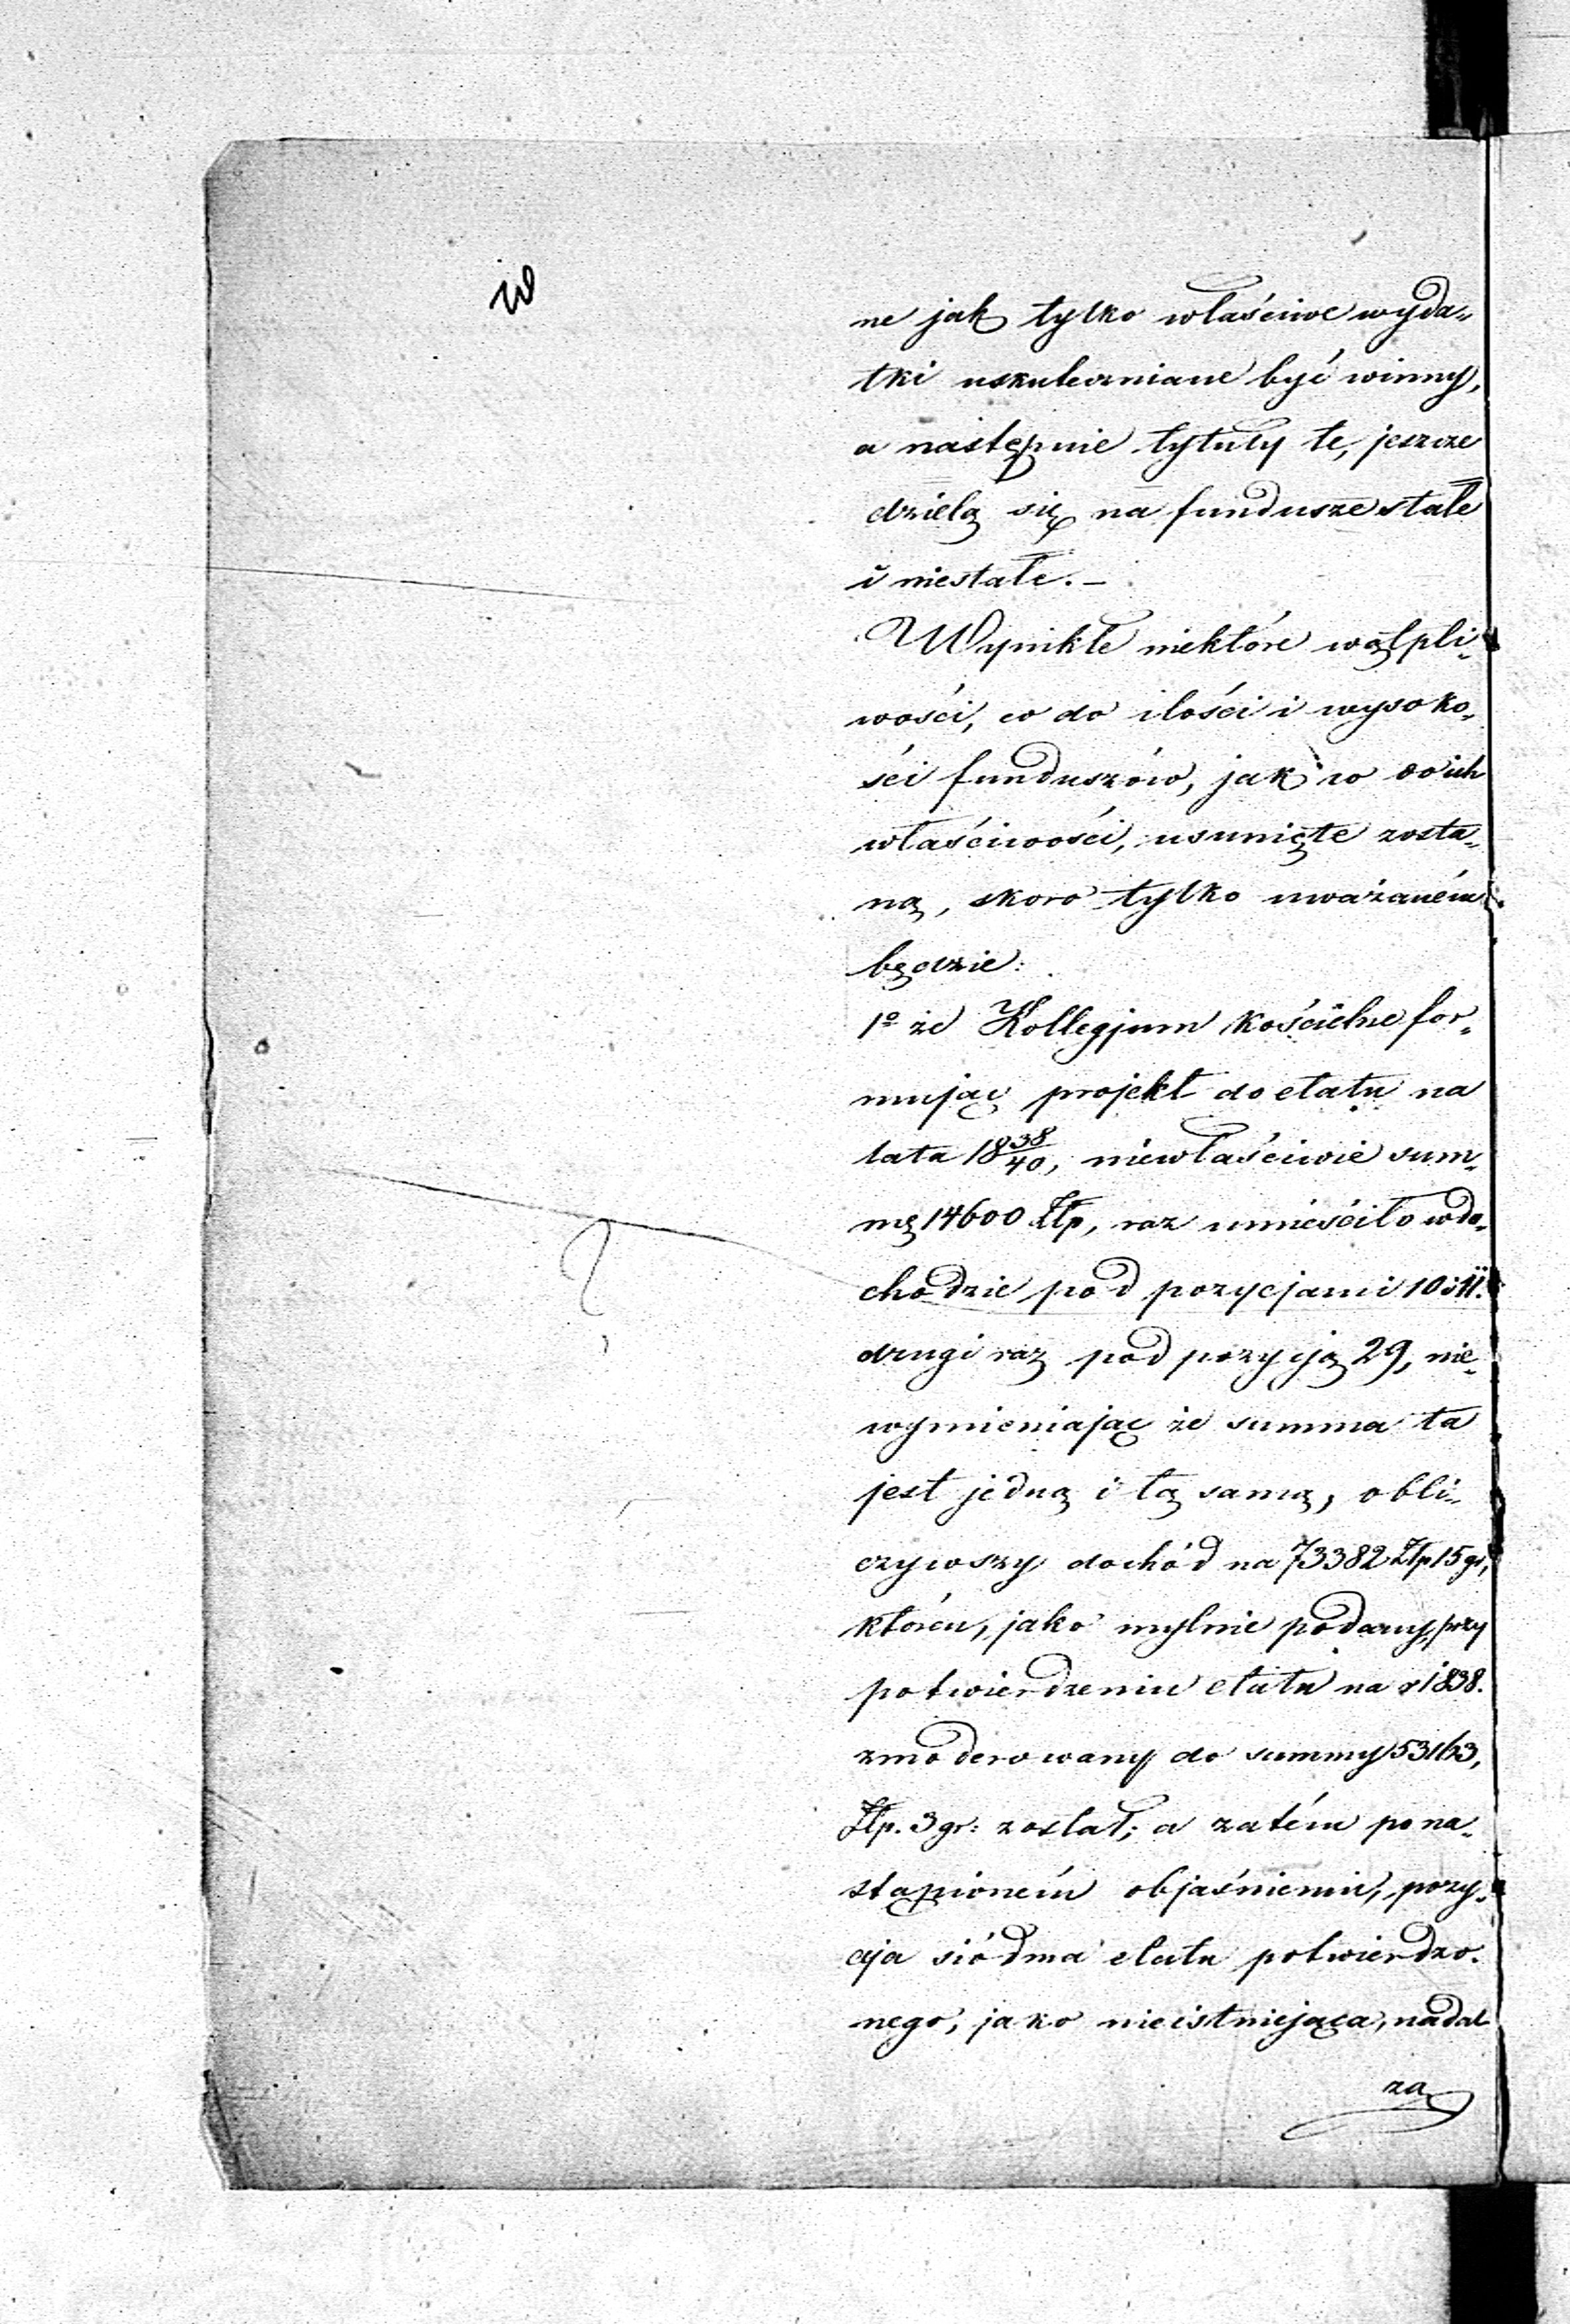 w
ne jak tylko właściwe wyda-
tki uskuteczniane być winny,
a następnie tytuły te, jeszcze
dzielą się na fundusze stałe
i niestałe. –
Wynikłe niektóre wątpli-
wości, co do ilości i wysoko-
ści funduszów, jak i co do ich
właściwości, usunięte zosta-
ną, skoro tylko uważaném
będzie:
1º że Kollegjum kościelne for-
mując projekt do etatu na
lata 18 38/40, niewłaściwie sum-
mę 14600 Złp, raz umieściło w do-
chodzie pod pozycjami 10 i 11.
drugi raz pod pozycją 29, nie-
wymieniając że summa ta
jest jedną i tą samą, obli-
czywszy dochód na 73382 Złp 15 gr,
któren, jako mylnie podany, przy
potwierdzeniu etatu na r 1838.
zmoderowany do summy 53163,
Złp. 3 gr: został; a zatém po na-
stąpioném objaśnieniu, pozy-
cja siódma etatu potwierdzo-
nego, jako nieistniejąca, nadal
za